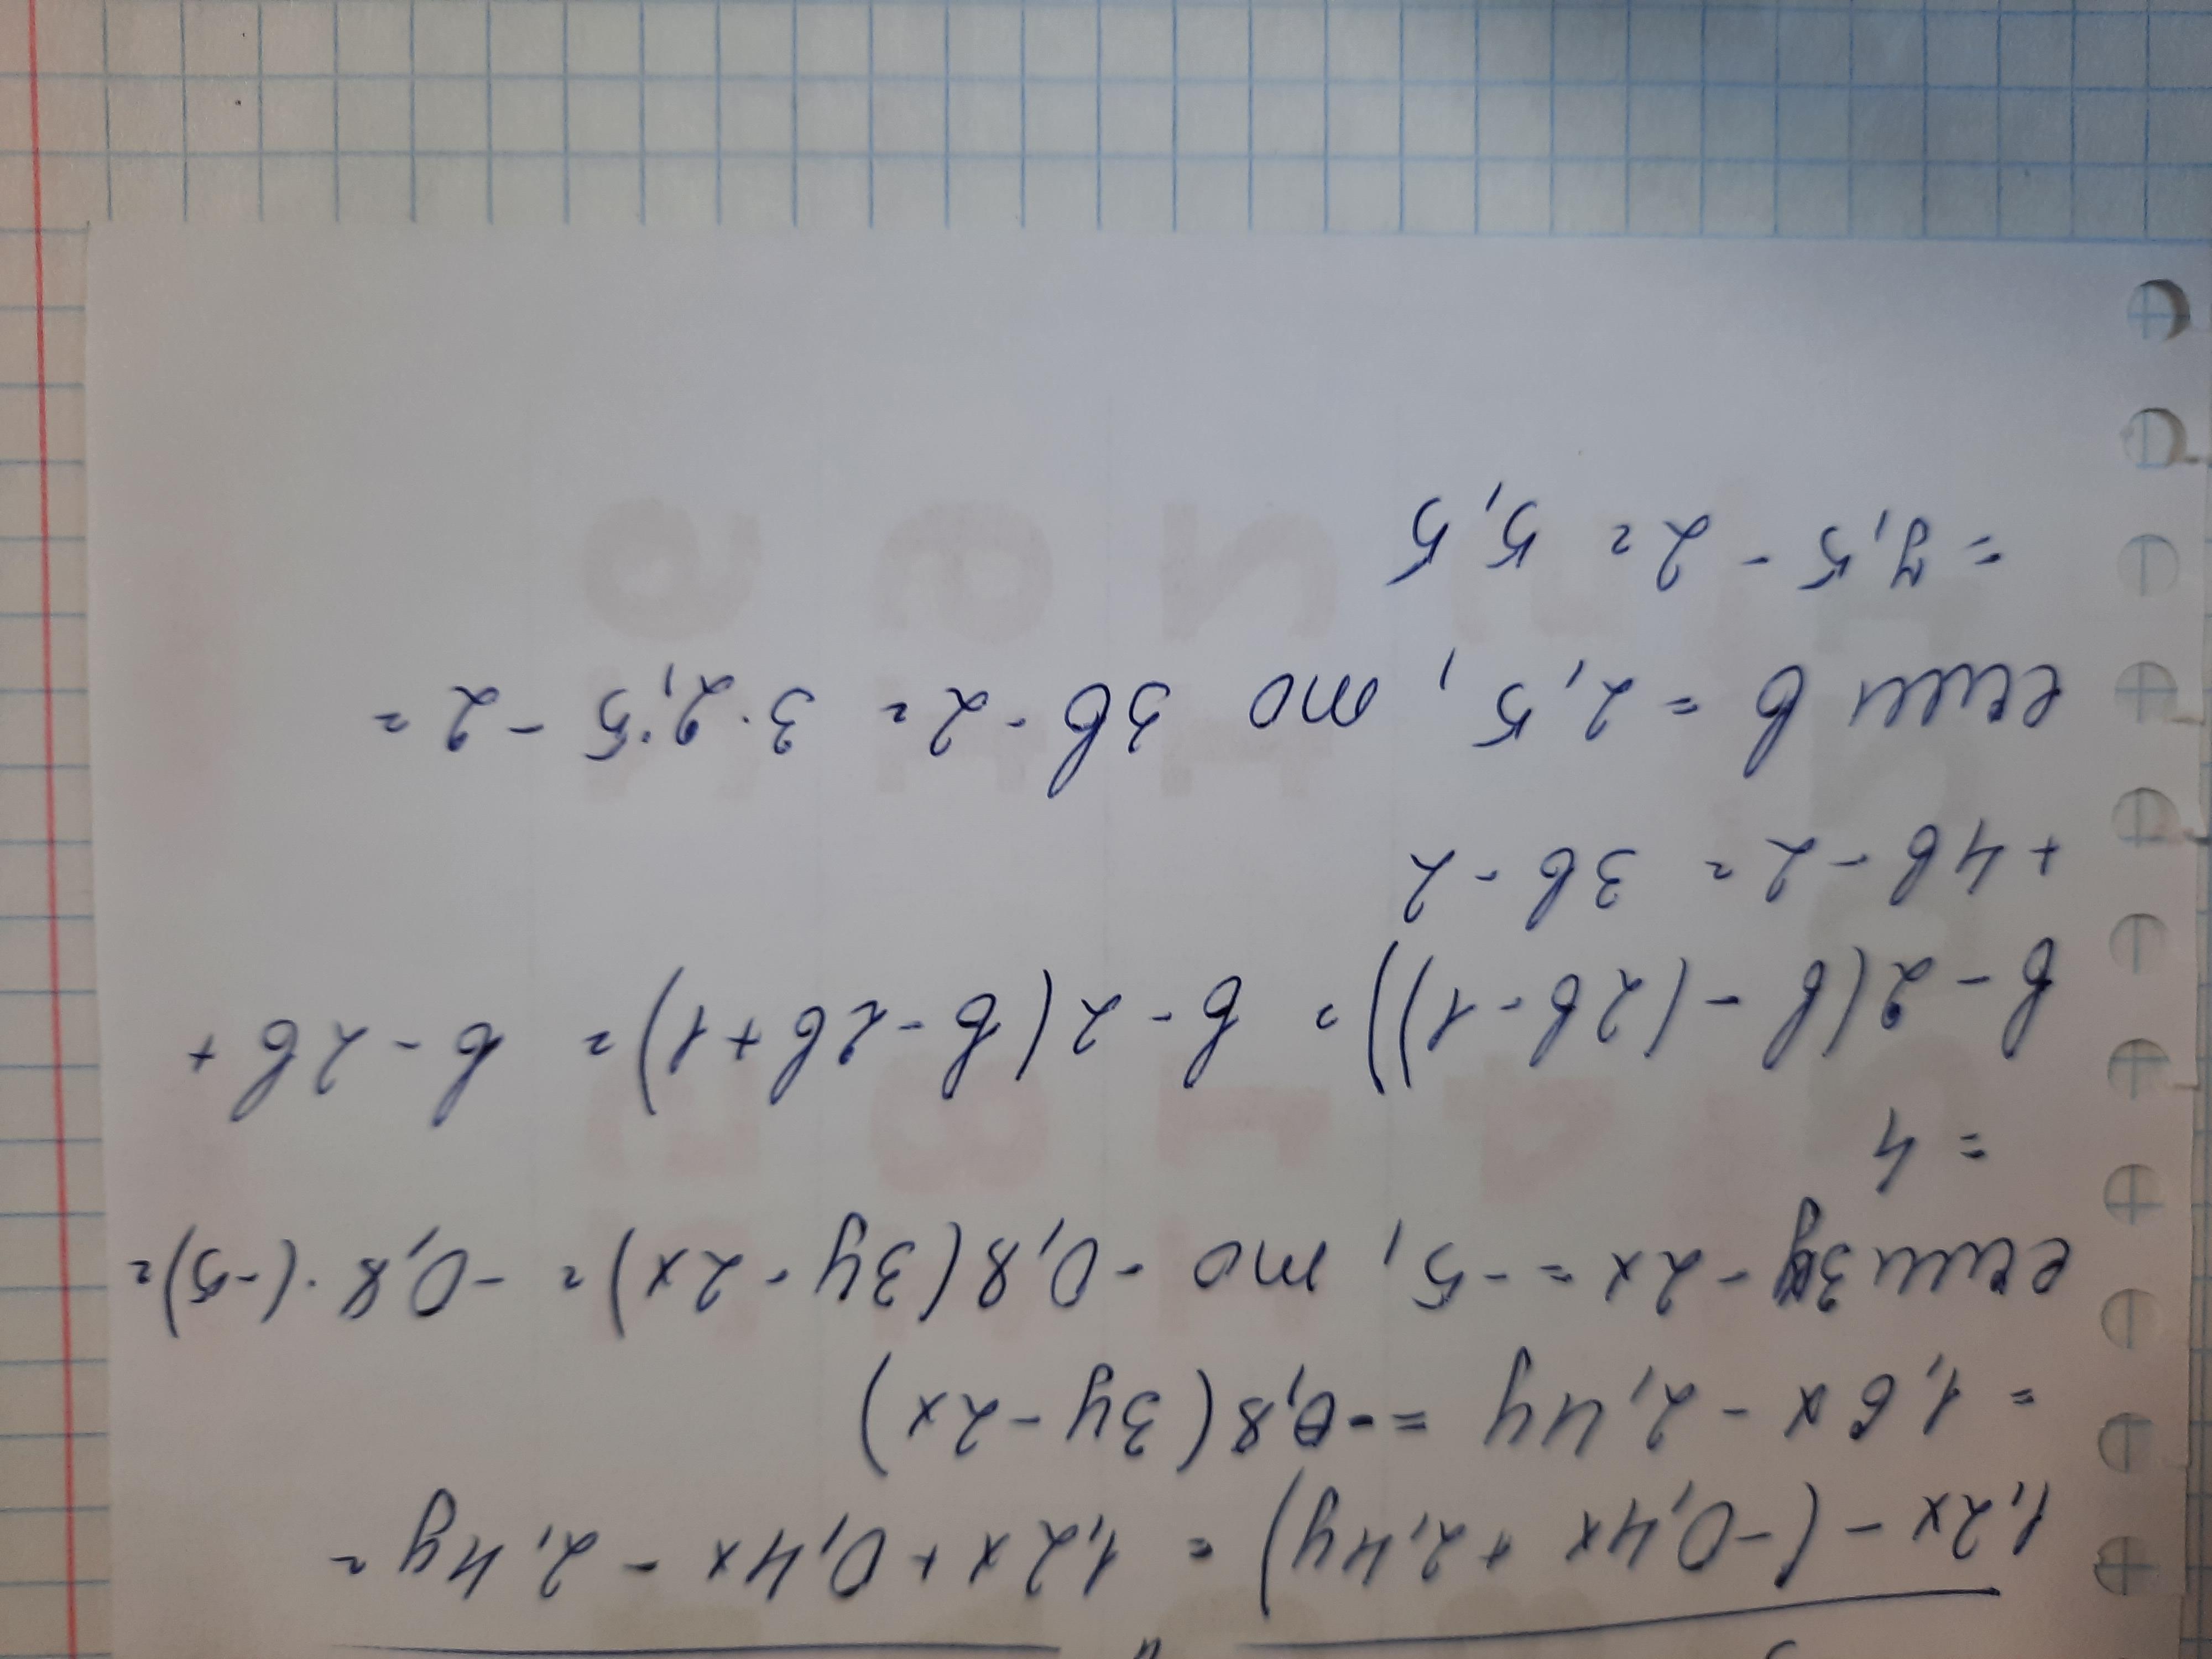 1,2x - (-0,4x + 2,4y) = 1,2x + 0,4x - 2,4y =
= 1,6x - 2,4y = -0,8(3y - 2x)
если 3y - 2x = -5, то -0,8(3y - 2x) = -0,8·(-5) =
= 4
b - 2(b - (2b - 1)) = b - 2(b - 2b + 1) = b - 2b +
+ 4b - 2 = 3b - 2
если b = 2,5, то 3b - 2 = 3·2,5 - 2 =
= 7,5 - 2 = 5,5